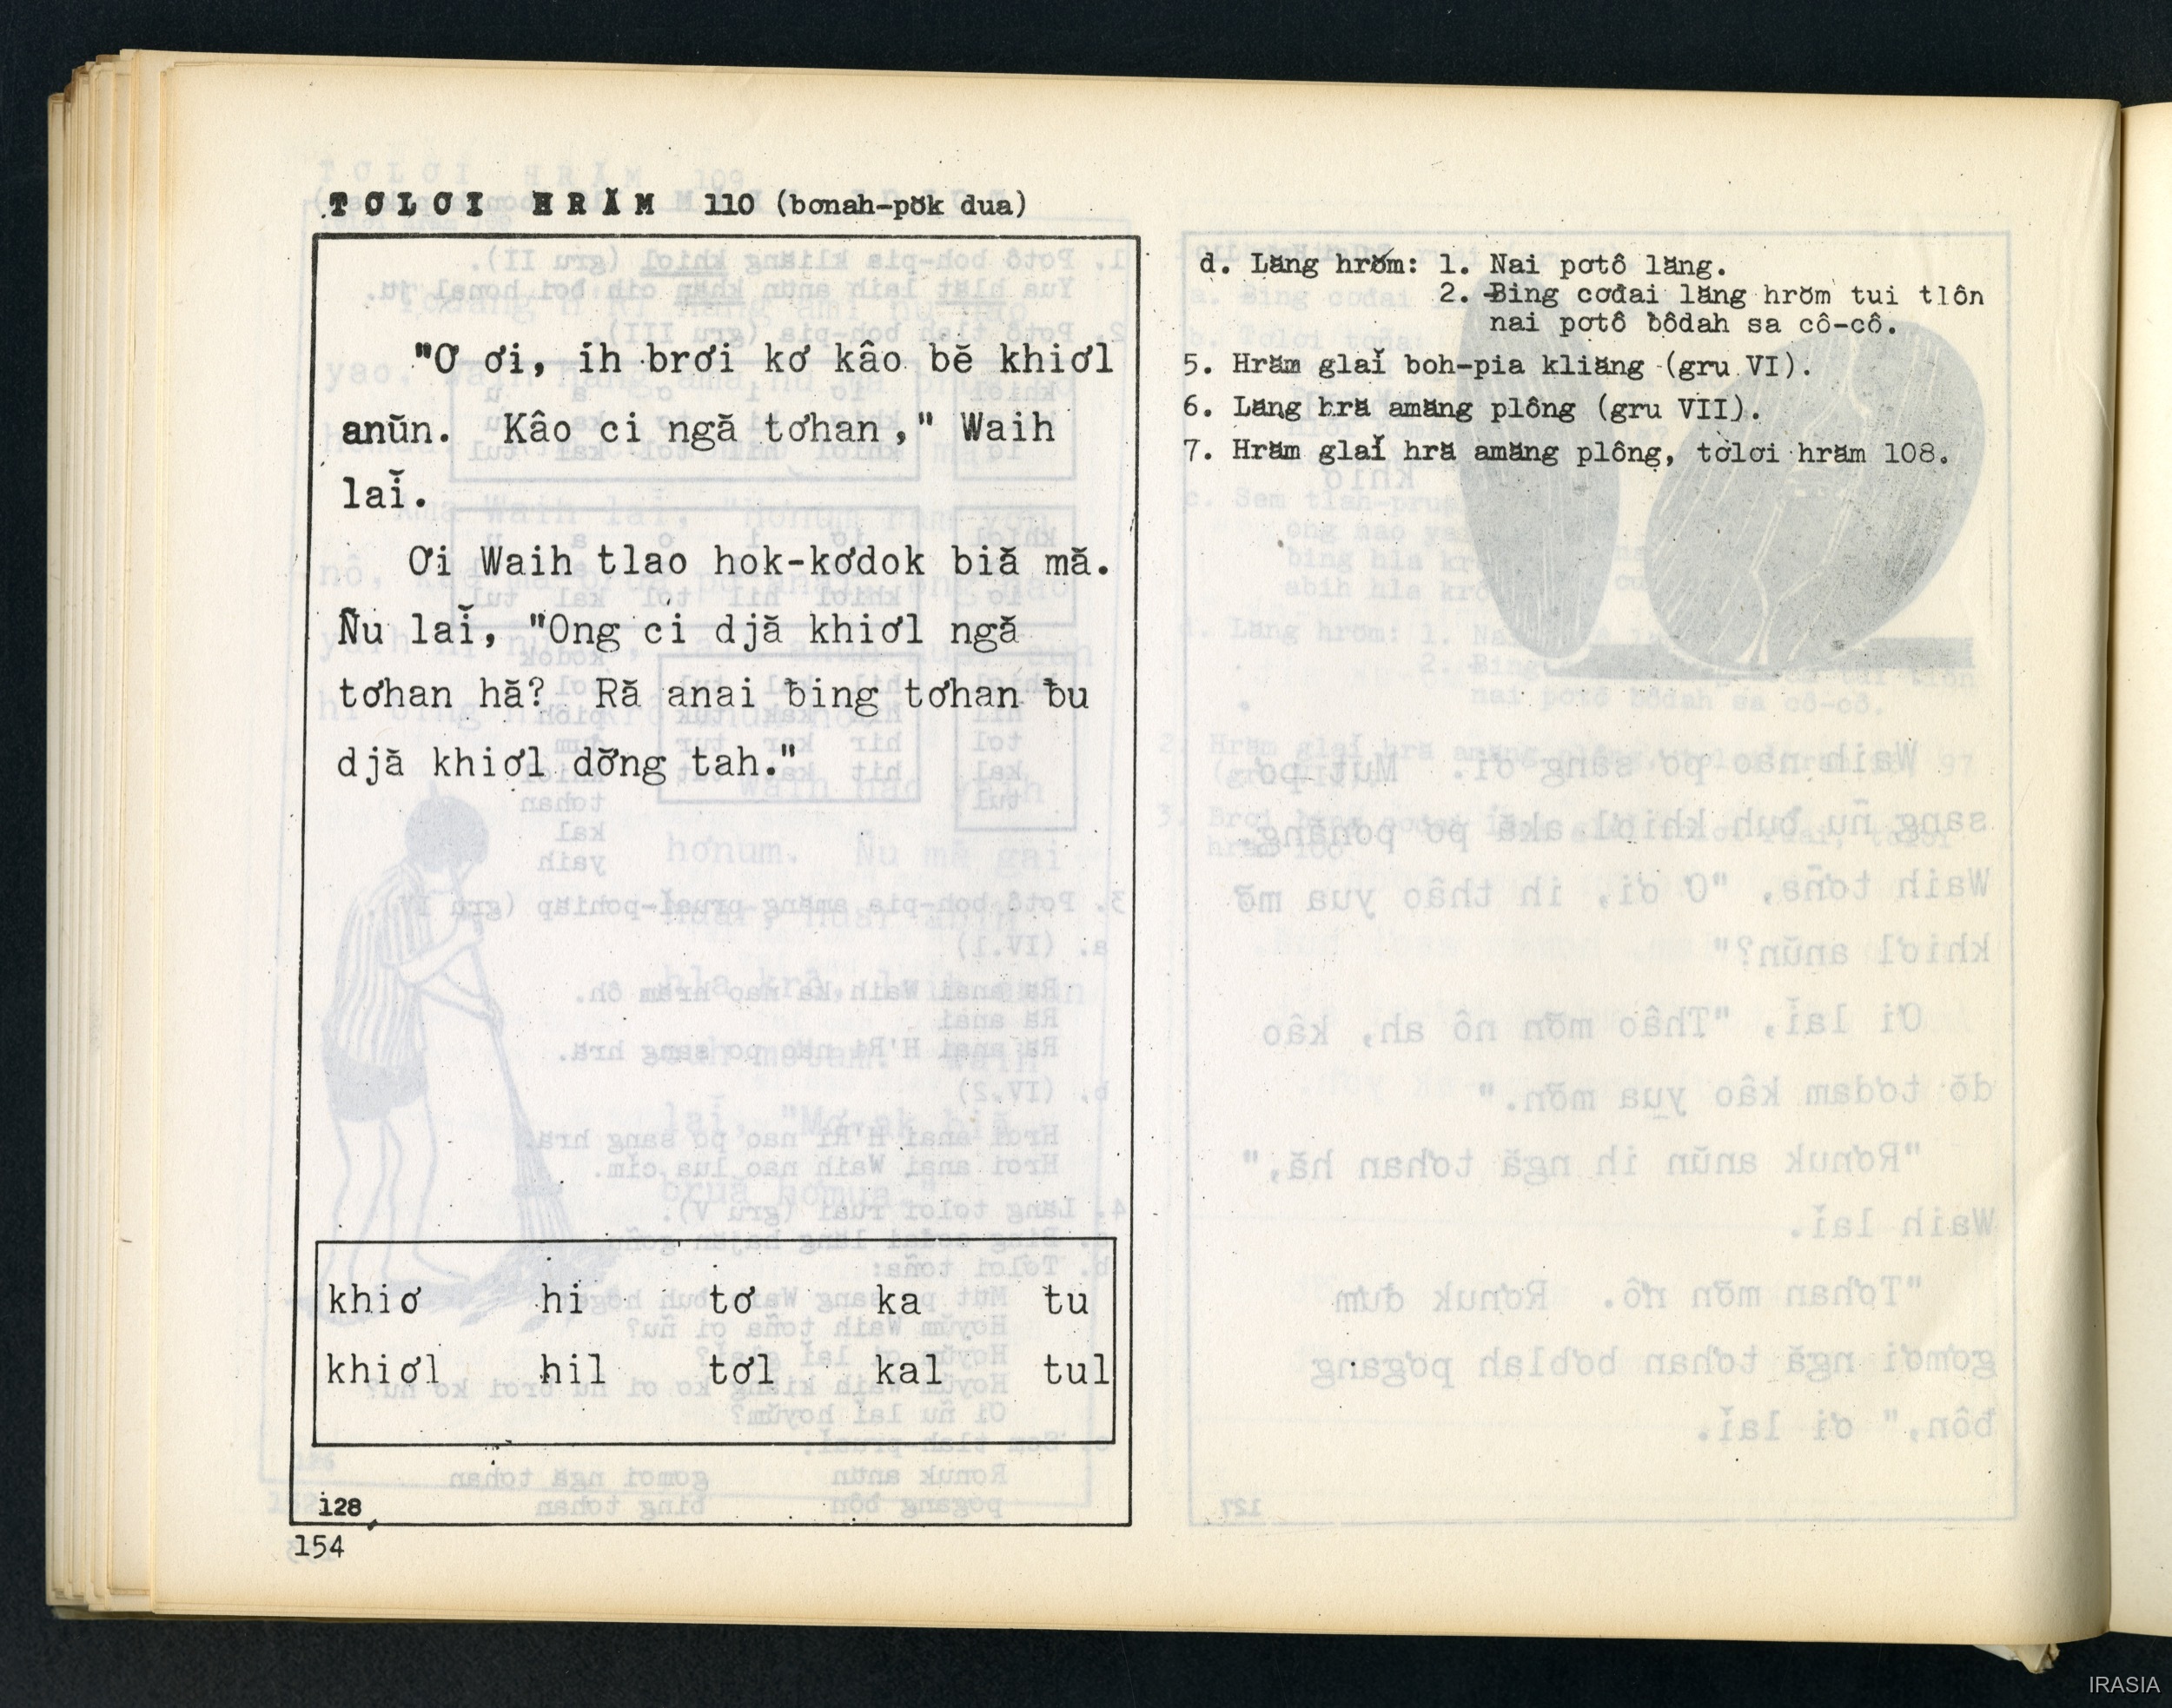 TƠLƠI HRĂM 110 (bơnah-pŏk dua)
"Ơ ơi, ih brơi kơ kâo bĕ khiơl
anŭn. Kâo ci ngă tơhan," Waih
laĭ.
Ơi Waih tlao hok-kơdok biă mă.
Ñu laĭ, "Ong ci djă khiơl ngă
tơhan hă? Ră anai ƀing tơhan ƀu
djă khiơl dơ̆ng tah."
khiơ hi tơ ka tu
khiơl hil tơl kal tul
128
154
d. Lăng hrŏm: 1. Nai pơtô lăng.
2. Ƀing cơđai lăng hrŏm tui tlôn
nai pơtô ƀôdah sa cô-cô.
5. Hrăm glaĭ boh-pia kliăng (gru VI).
6. Lăng hră amăng plông (gru VII).
7. Hrăm glaĭ hră amăng plông, tơlơi hrăm 108.
IRASIA